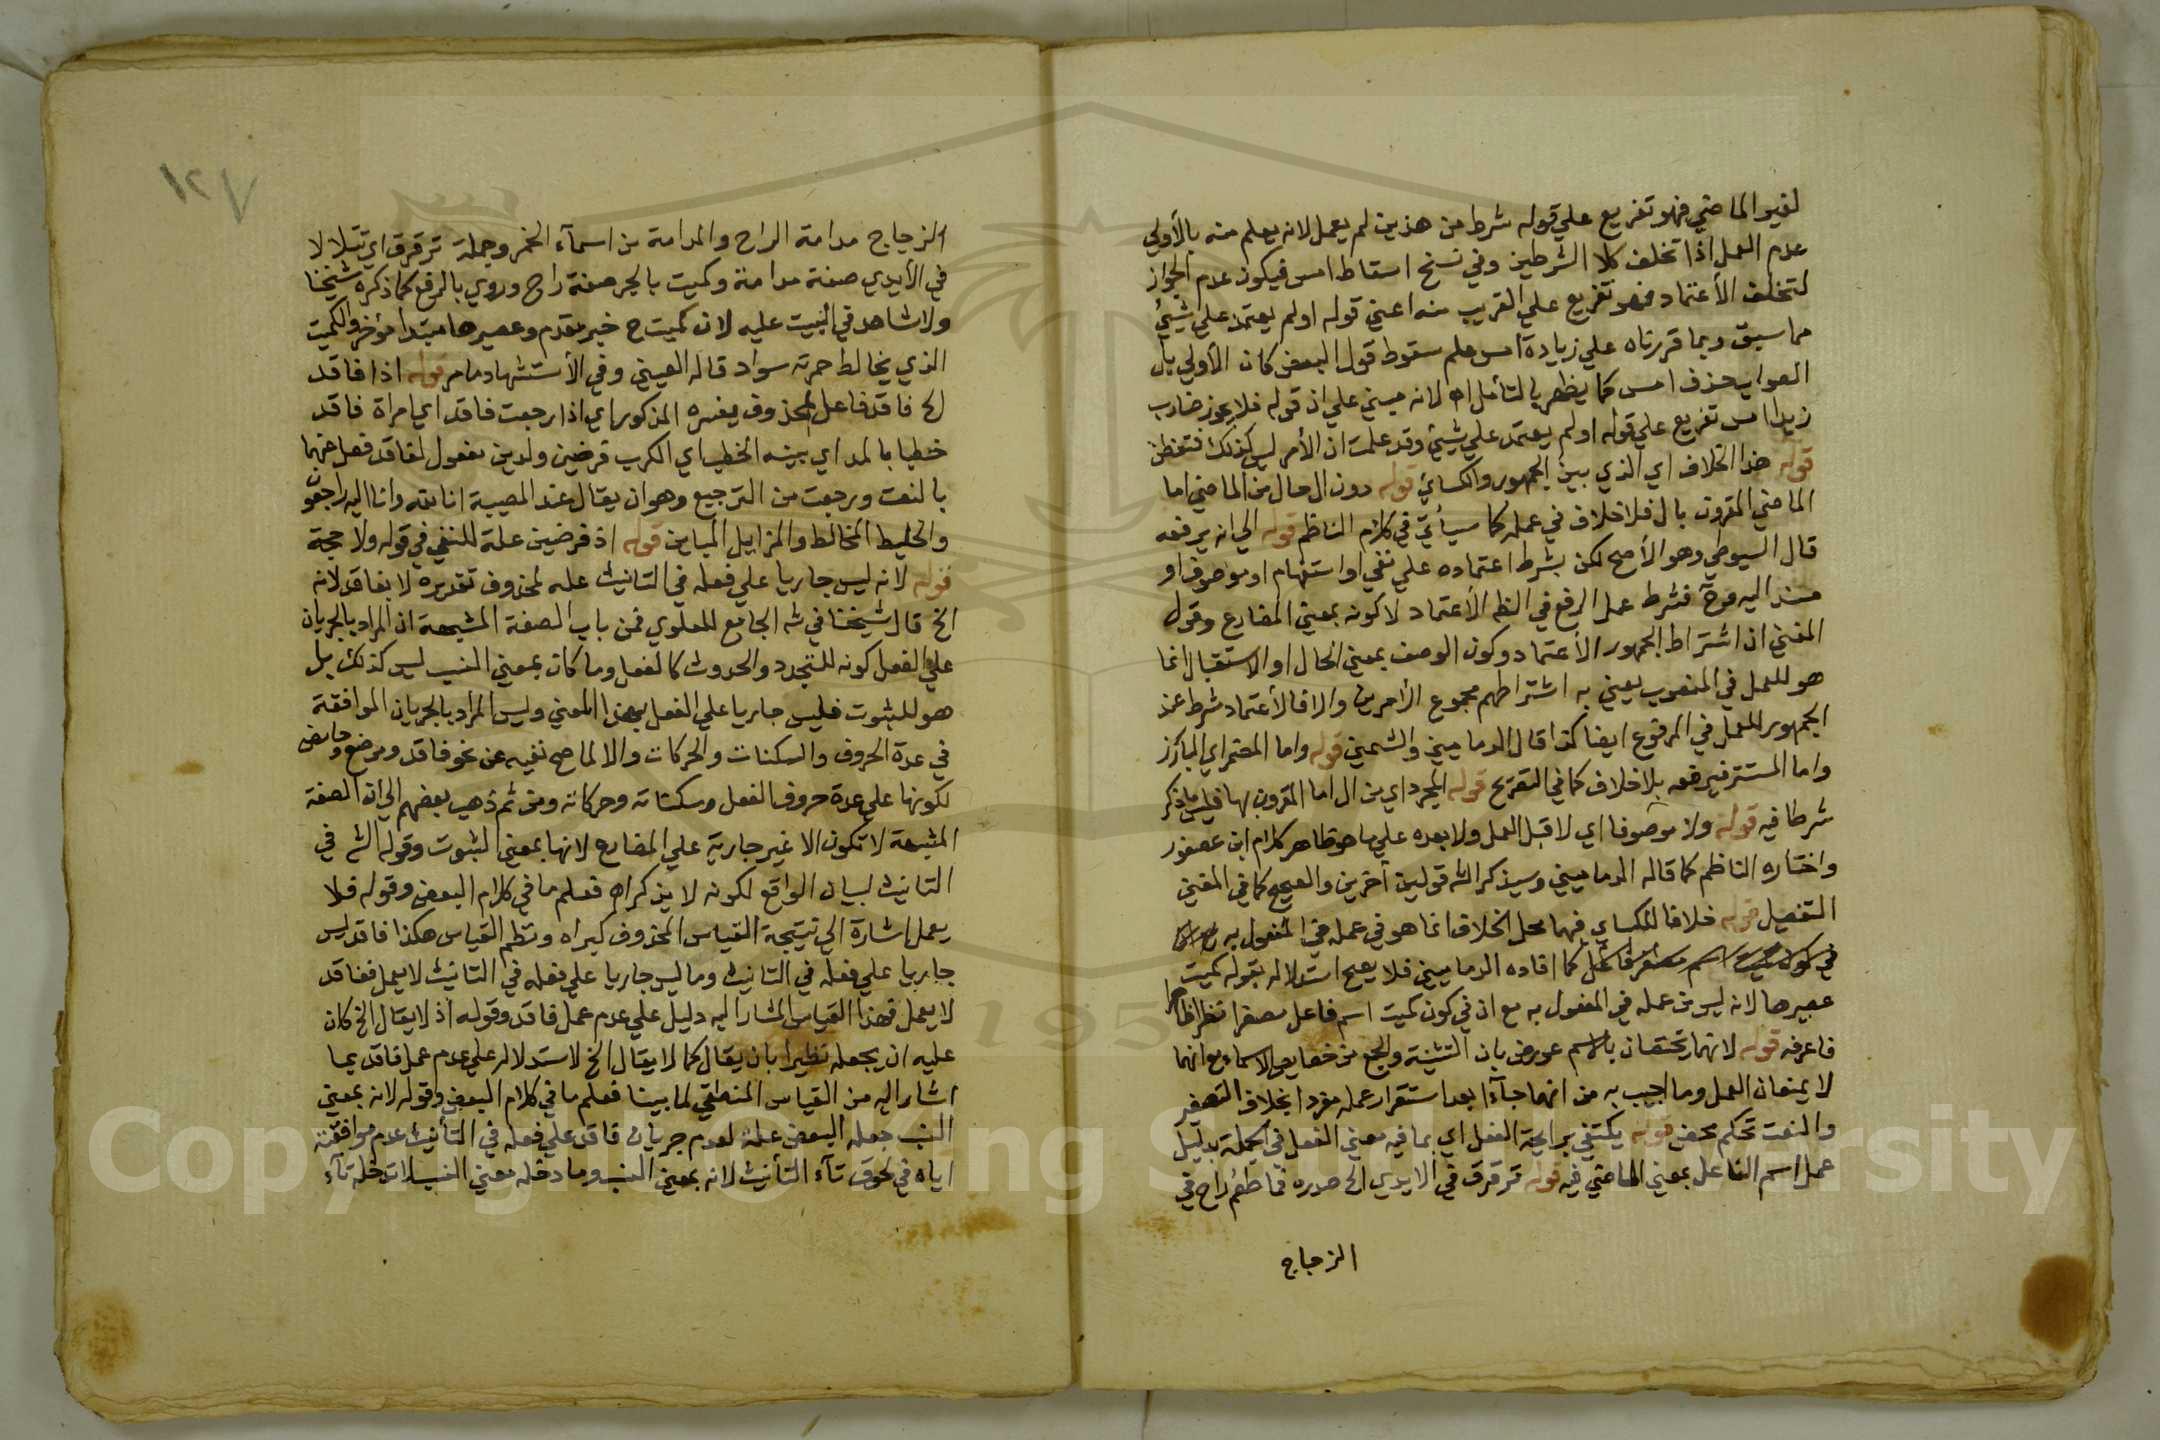 لغيو الماضي فهو تفريع علي قوله شرط من هذين لم يعمل لانه يعلم منه بالأولي
عدم العمل اذا تخلف كلا الشرطين وفي نسخ اسقاط امس فيكون عدم الجواز
لتخلف الأعتماد فهو تفريع علي القريب منه اعني قوله اولم يعتمد علي شيئ
مما سبق وبما قررناه علي زيادة امس علم سقوط قول البعض كان الأولي بل
الصواب حذف امس كما يظهر بالتأمل اه لانه مبني علي ان قوله فلا يجوز ضارب
زيدا امس تفريع علي قوله اولم يعتمد علي شيئ وقد علمت ان الأمر ليس كذلك فتفطن
قوله هذا الخلاف اي الذي بين الجمهور والكسائي قوله دون ال حال من الماضي اما
الماضي المقرون بال فلا خلاف في عمله كما سيأتي في كلام الناظم قوله الي انه يرفعه
قال السيوطي وهو الأصح لكن بشرط اعتماده علي نفي او استفهام او موصوف او
مسند اليه فشرط عمل الرفع في الظم الأعتماد لا كونه بمعني المضارع وقول
المغني ان اشتراط الجمهور الأعتماد وكون الوصف بمعني الحال او الاستقبال انما
هو للعمل في المنصوب يعني به اشتراطهم مجموع الأمرين والا فالأعتماد شرط عند
الجمهور للعمل في المرفوع ايضا كذا قال الدماميني والشمني قوله واما المضمر اي البارز
واما المستتر فيرفعه بلا خلاف كما في التصريح قوله المجرد اي من ال اما المقرون بها فليس ما ذكر
شرطا فيه قوله ولا موصوفا اي لا قبل العمل ولا بعده علي ما هو ظاهر كلام ابن عصفور
واختاره الناظم كما قاله الدماميني وسيذكر الش قولين أخرين والصحيح كما في المغني
التفصيل قوله خلافا للكساي فيهما محل الخلاف انما هو في عمله في المفعول به
كما افاده الدماميني فلا يصح استدلاله بقوله كميت
عصيرها لانه ليس من عمله في المفعول به مع ان في كون كميت اسم فاعل مصغرا نظرا ظاهرا
فاعرفه قوله لانهما يختصان بالاسم عورض بان التثنية والجمع من خصايص الاسماء مع انهما
لا يمنعان العمل وما اجيب به من انهما جآا بعد استقرار عمله مفردا بخلاف التصغير
والنعت تحكم محض قوله يكتفي برايحة الفعل اي بما فيه معني الفعل في الجملة بدليل
عمل اسم الفاعل بمعني الماضي فيه قوله ترقرق في الايدي الخ صدره فما طعم راح في
الزجاج
١٢٧
الزجاج مدامة الراح والمدامة من اسمآء الخمر وجملة ترقرق اي تتلألا
في الأيدي صفة مدامة وكميت بالجر صفة راح وروي بالرفع كما ذكره شيخنا
ولا شاهد في البيت عليه لان كميت ح خبر مقدم وعصيرها مبتدا مؤخر والكميت
الذي يخالط حمرته سواد قاله العيني وفي الأستشهاد ما مر قوله اذا فاقد
الخ فاقد فاعل لمحذوف يفسره المذكور اي اذا رجعت فاقد اي امراة فاقد
خطبا بالمد اي بينة الخطب اي الكرب فرخين ولدين مفعول لفاقد فصل عنهما
بالنعت ورجعت من الترجيع وهو ان يقال عند المصيبة انا لله وانا اليه راجعون
والخليط المخالط والمزايل المباين قوله اذ فرخين علة للنفي في قوله ولا حجة
قوله لانه ليس جاريا علي فعله في التانيث علة لمحذوف تقديره لا بفاقد لانه
الخ قال شيخنا في شه الجامع للملوي فمن باب الصفة المشبهة اذ المراد بالجريان
علي الفعل كونه للتجدد والحدوث كالفعل وما كان بمعني النسب ليس كذلك بل
هو للثبوت فليس جاريا علي الفعل بهذا المعني وليس المراد بالجريان الموافقة
في عدة الحروف والسكنات والحركات والا لما صح نفيه عن نحو فاقد ومرضع وحايض
لكونها علي عدة حروف الفعل وسكناته وحركاته ومن ثم ذهب بعضهم الي ان الصفة
المشبهة لا تكون الا غير جارية علي المضارع لانها بمعني الثبوت وقوله الش في
التانيث لبيان الواقع لكونه لا يذكر اه فعلم ما في كلام البعض وقوله فلا
يعمل اشارة الي نتيجة القياس المحذوف كبراه ونظم القياس هكذا فاقد ليس
جاريا علي فعله في التانيث وما ليس جاريا علي فعله في التانيث لا يعمل ففاقد
لا يعمل فهذا القياس المشار اليه دليل علي عدم عمل فاقد وقوله اذ لا يقال الخ كان
عليه ان يجعله نظيرا بان يقال كما لا يقال الخ لاستدلاله علي عدم عمل فاقد بما
اشار اليه من القياس المنطقي لما بينا فعلم ما في كلام البعض وقوله لانه بمعني
النسب جعله البعض علة لعدم جريان فاقد علي فعله في التأنيث عدم موافقته
اياه في لحوق تآء التأنيث لانه بمعني النسب وما دخله معني النسب لا تدخله تآء
Copyright © King Saud University
1957